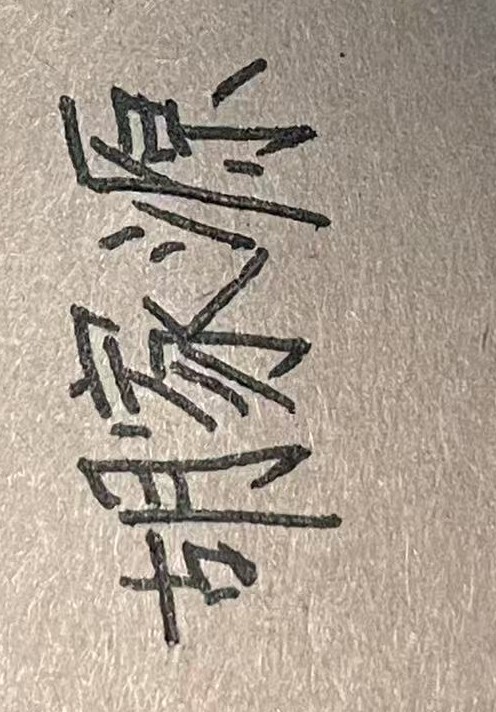 胡家源